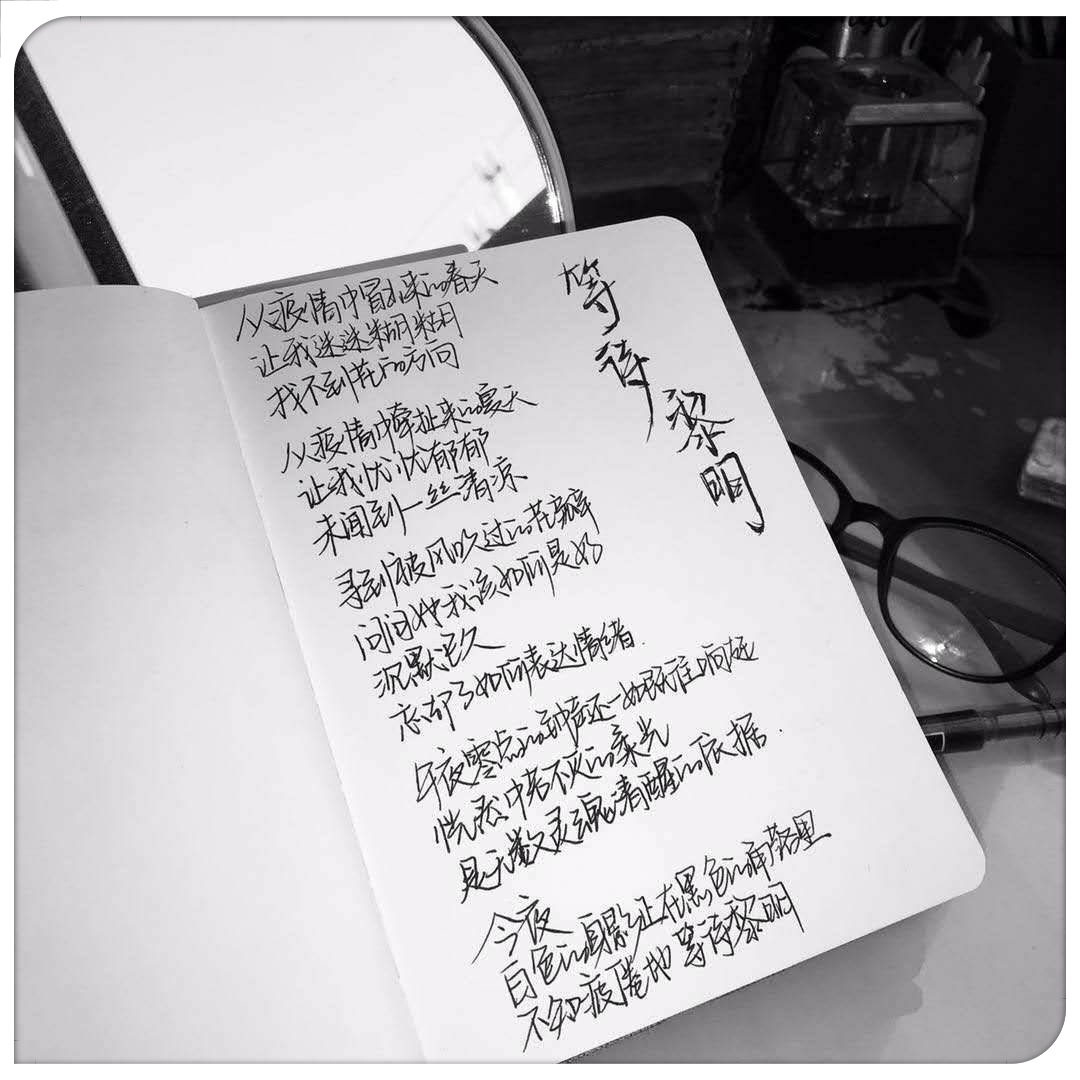 等待黎明
从疫情中冒出来的春天
让我迷迷糊糊
找不到花的方向
从疫情中牵扯来的夏天
让我忧忧郁郁
未闻到一丝清凉
寻到被风吹过的花瓣
问问她我该如何是好
沉默已久
忘却了如何表达情绪
午夜零点的钟声还一如既往响起
恍然中若不灭的柔光
是无数灵魂清醒的依据
今夜
白色的身影让在黑色的帘幕里
不知疲倦地 等待黎明